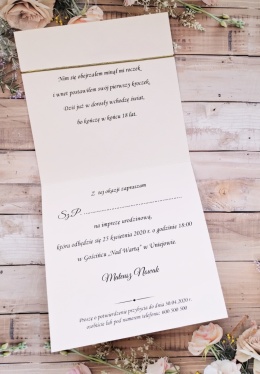 Nim się obejrzałem minął mi roczek,
i wnet postawiłem swój pierwszy kroczek.
Dziś już w dorosły wchodzę świat,
bo kończę w końcu 18 lat.
Z tej okazji zapraszam
Sz.P. ................................................
na imprezę urodzinową,
która odbędzie się 25 kwietnia 2020 r. o godzinie 18:00
w Gościńcu „Nad Wartą” w Uniejowie.
Mateusz Nowak
Proszę o potwierdzenie przybycia do dnia 10.04.2020 r.
osobiście lub pod numerem telefonu: 600 500 500